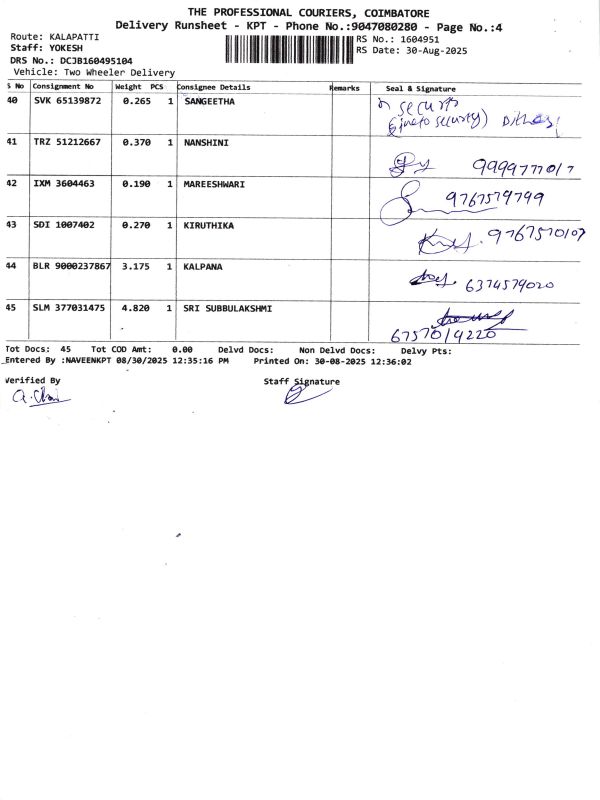 THE PROFESSIONAL COURIERS, COIMBATORE
Delivery Runsheet - KPT - Phone No.:9047080280 - Page No.:4
Route: KALAPATTI
RS No.: 1604951
Staff: YOKESH
RS Date: 30-Aug-2025
DRS No.: DCJB160495104
Vehicle: Two Wheeler Delivery
S No Consignment No Weight PCS Consignee Details Remarks Seal & Signature
40 SVK 65139872 0.265 1 SANGEETHA
security)
41 TRZ 51212667 0.370 1 NANSHINI
9999777017
42 IXM 3604463 0.190 1 MAREESHWARI
9767579799
43 SDI 1007402 0.270 1 KIRUTHIKA
9767570107
44 BLR 9000237867 3.175 1 KALPANA
6374579020
45 SLM 377031475 4.820 1 SRI SUBBULAKSHMI
Tot Docs: 45 Tot COD Amt: 0.00 Delvd Docs: Non Delvd Docs: Delvy Pts:
Entered By :NAVEENKPT 08/30/2025 12:35:16 PM Printed On: 30-08-2025 12:36:02
Verified By
Staff Signature